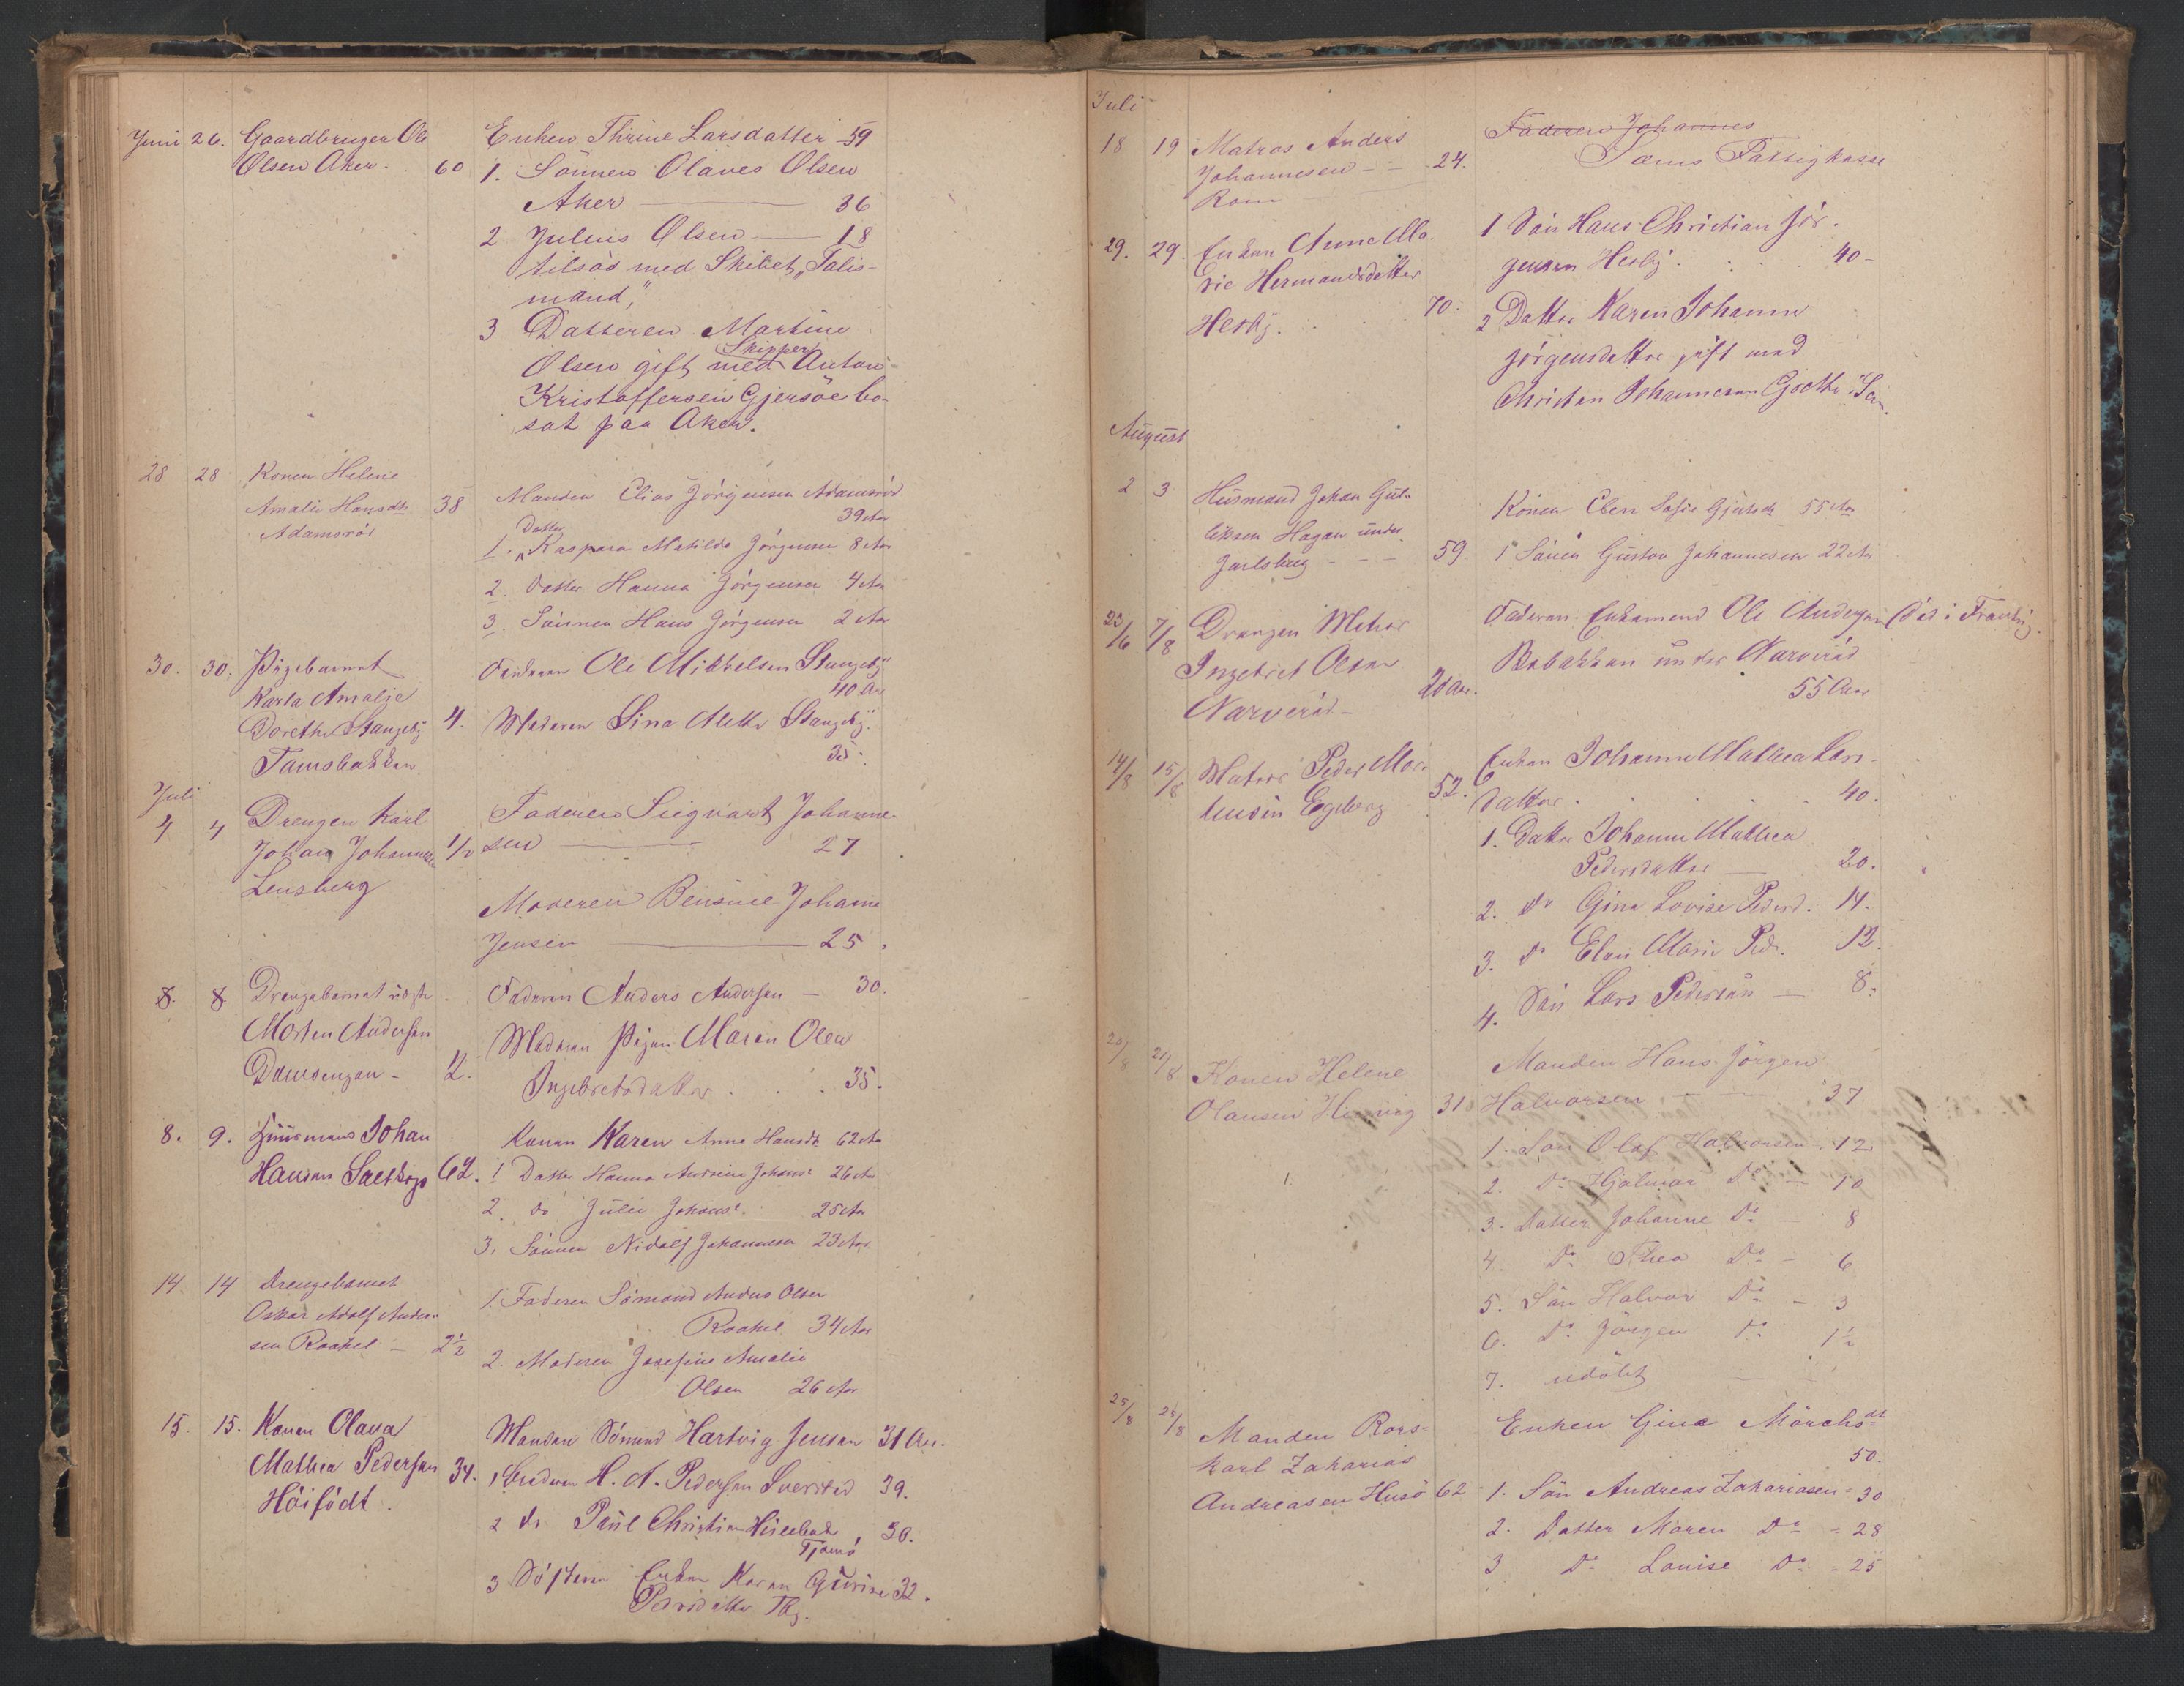 Juni 26. Gaardbruger Ole
Olsen Aker. 60
Enken Thrine Larsdatter 59
1. Sönnen Olaves Olsen
Aker 36
2 Julius Olsen 18
tilsös med Skibet „Talis-
mand"
3 Datteren Martine
Olsen gift med (Skipper) Anton
Kristoffersen Gjersöe bo-
sat paa Aker.
28 28 Konen Helene
Amalie Hansdtr 38
Adamsröd
Manden Elias Jörgensen Adamsröd
39 Aar
1. Datter Kaspara Matilde Jörgensen 8 Aar
2. Datter Hanna Jörgensen 4 Aar
3. Sönnen Hans Jörgensen 2 Aar
30. 30. Pigebarnet
Karla Amalie
Dorethe Stangeby 4.
Tamsbakken
Faderen Ole Mikkelsen Stangeby
40 Aar
Moderen Sina Mette Stangeby.
35.
Juli
4 4 Drengen Karl
Johan Johannesen 1/2
Lensberg
Faderen Siegvart Johanne-
sen 27
Moderen Bensine Johanne
Jensen 25.
8. 8 Drengebarnet uægte
Morten Andersen
Damsengen - 1/2.
Faderen Anders Andersen — 30.
Moderen Pigen Maren Olea
Ingebretsdatter . . 35.
8. 9. Huusmand Johan
Hansen Saltkop 62.
Konen Karen Anne Hansdtr 62 Aar
1 Datter Hanna Andrine Johans. 26 Aar
2. do Julie Johans. 25 Aar
3. Sönnen Nidolf Johannesen 23 Aar
14. 14 Drengebarnet
Oskar Adolf Ander-
sen Raakel — 2 1/2
1. Faderen Sömand Anders Olsen
Raakel 34 Aar
2. Moderen Josefine Amalie
Olsen 26 Aar
15. 15. Konen Olava
Mathea Pedersen 34.
Höifödt.
Manden Sömand Hartvig Jensen 31 Aar.
1 Broderen H. A. Pedersen Sverstad 39.
2 do Paul Christian
Tjömö 30.
3 Söstern Enken Karen Gurine 32.
Pedersdatter Tbg.
Juli
18 19 Matros Anders
Johannesen — 24.
Rom
Faderen Johannes
Sæms Fattigkasse
29. 29. Enken Anne Ma-
rie Hermandsdatter
Hesby. 70.
1 Sön Hans Christian Jör-
gensen Hesby. 40-
2 Datter Karen Johanne
Jörgensdatter gift med
Christen Johannesen Grette i Sem.
August
2 3 Husmand Johan Gul-
liksen Hagan under
Jarlsberg - - - 59.
Konen Elen Sofie Gjertsdtr 55 Aar
1 Sönen Gustav Johannesen 22 Aar
23/6 7/8 Drengen Matros
Ingebret Olsen
20 Aar.
Narveröd —
Faderen Enkemand Ole Andersen (död i Fran
Bæbakken under Narveröd
55 Aar
14/8 15/8 Matros Peder Mor-
tensen Egeberg 52.
Enken Johanne Mathea Lars-
datter. 40.
1. Datter Johanne Mathea
Pedersdatter — 20.
2. do Gina Lovise Pedersd. 14.
3. do Elen Marie Ped. 12.
4. Sön Lars Pedersen — 8.
20/8 21/8 Konen Helene
Olausen Herning 31
Manden Hans Jörgen
Halvorsen — 37
1. Sön Olaf Halvorsen 12
2. Do Hjalmar Do — 10
3. Datter Johanne Do — 8
4. Do Thea Do — 6
5. Sön Halvor Do — 3
6. Do Jörgen Do 1 1/2
7. udöbt
25/8 25/8 Manden Rors-
karl Zakarias
Andreasen Husö 62
Enken Gina Mörchsdt
50.
1. Sön Andreas Zakariasen 30
2. Datter Maren Do = 28
3 Do Louise Do = 25